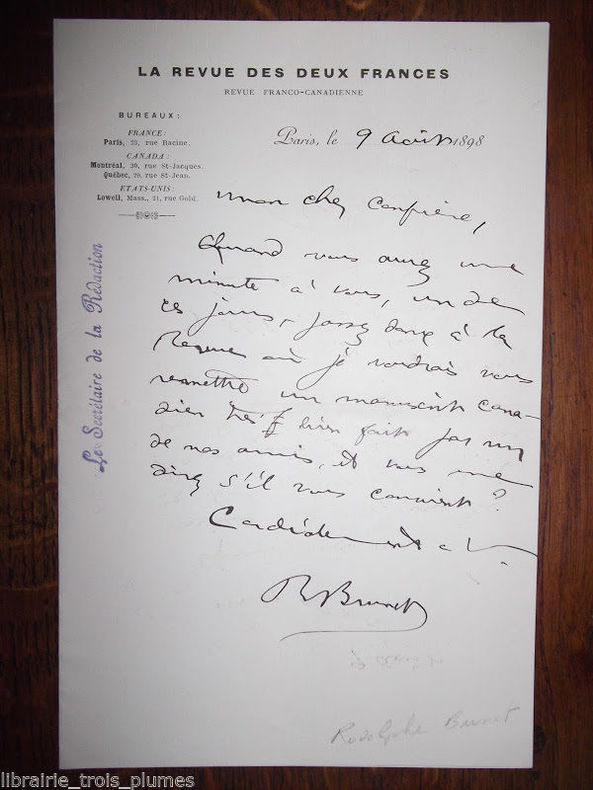 LA REVUE DES DEUX FRANCES
REVUE FRANCO-CANADIENNE
BUREAUX:
FRANCE:
Paris, 23, rue Racine.
CANADA:
Montréal, 30, rue St-Jacques.
Québec, 29, rue St-Jean.
ETATS-UNIS:
Lowell, Mass., 21, rue Gold.
Paris, le 9 Août 1898
Le Secrétaire de la Rédaction
Mon cher Confrère,
Quand vous aurez une
minute à vous, un de
ces jours, passez donc à la
Revue où je voudrais vous
remettre un manuscrit cana-
dien très bien fait par un
de nos amis, et vous me
direz s'il vous convient?
Cordialement à V.
R Brunet
Rodolphe Brunet
librairie_trois_plumes